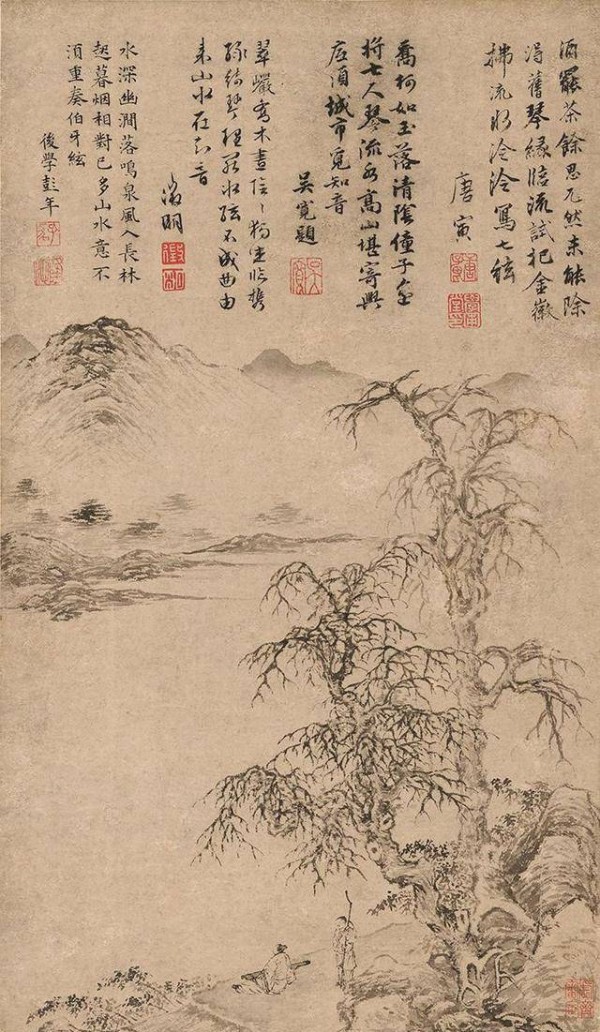 酒罷茶餘思兀然未能除
得舊琴緣臨流試把金徽
拂流水泠泠寫七絃
唐寅
喬柯如玉落清陰僮子
將七 琴流水高山堪寄興
底須城市覓知音
吳寬題
翠巖喬木晝愔〻獨坐臨
綠綺琴 冰絃不成曲由
來山水在知音
徵明
水深幽澗落鳴泉風入長林
起暮烟相對已多山水意不
須重奏伯牙絃
後學彭年